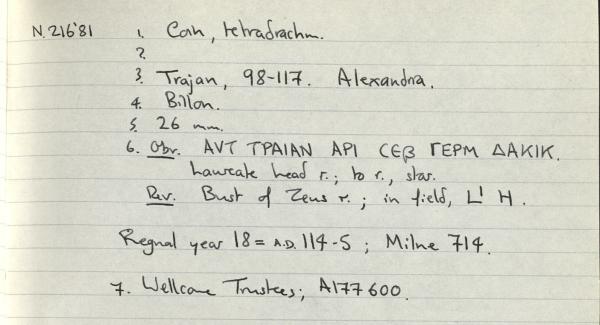 N.216'81 1. Coin, tetradrachm.
2.
3. Trajan, 98-117. Alexandria.
4. Billon.
5. 26 mm.
6. Obv. ΑVΤ ΤΡΑΙΑΝ ΑΡΙ CΕβ ΓΕΡΜ ΔΑΚΙΚ.
Laureate head r.; to r., star.
Rev. Bust of Zeus r.; in field, L' H.
Regnal year 18 = A.D. 114-5; Milne 714.
7. Wellcome Trustees; A177600.